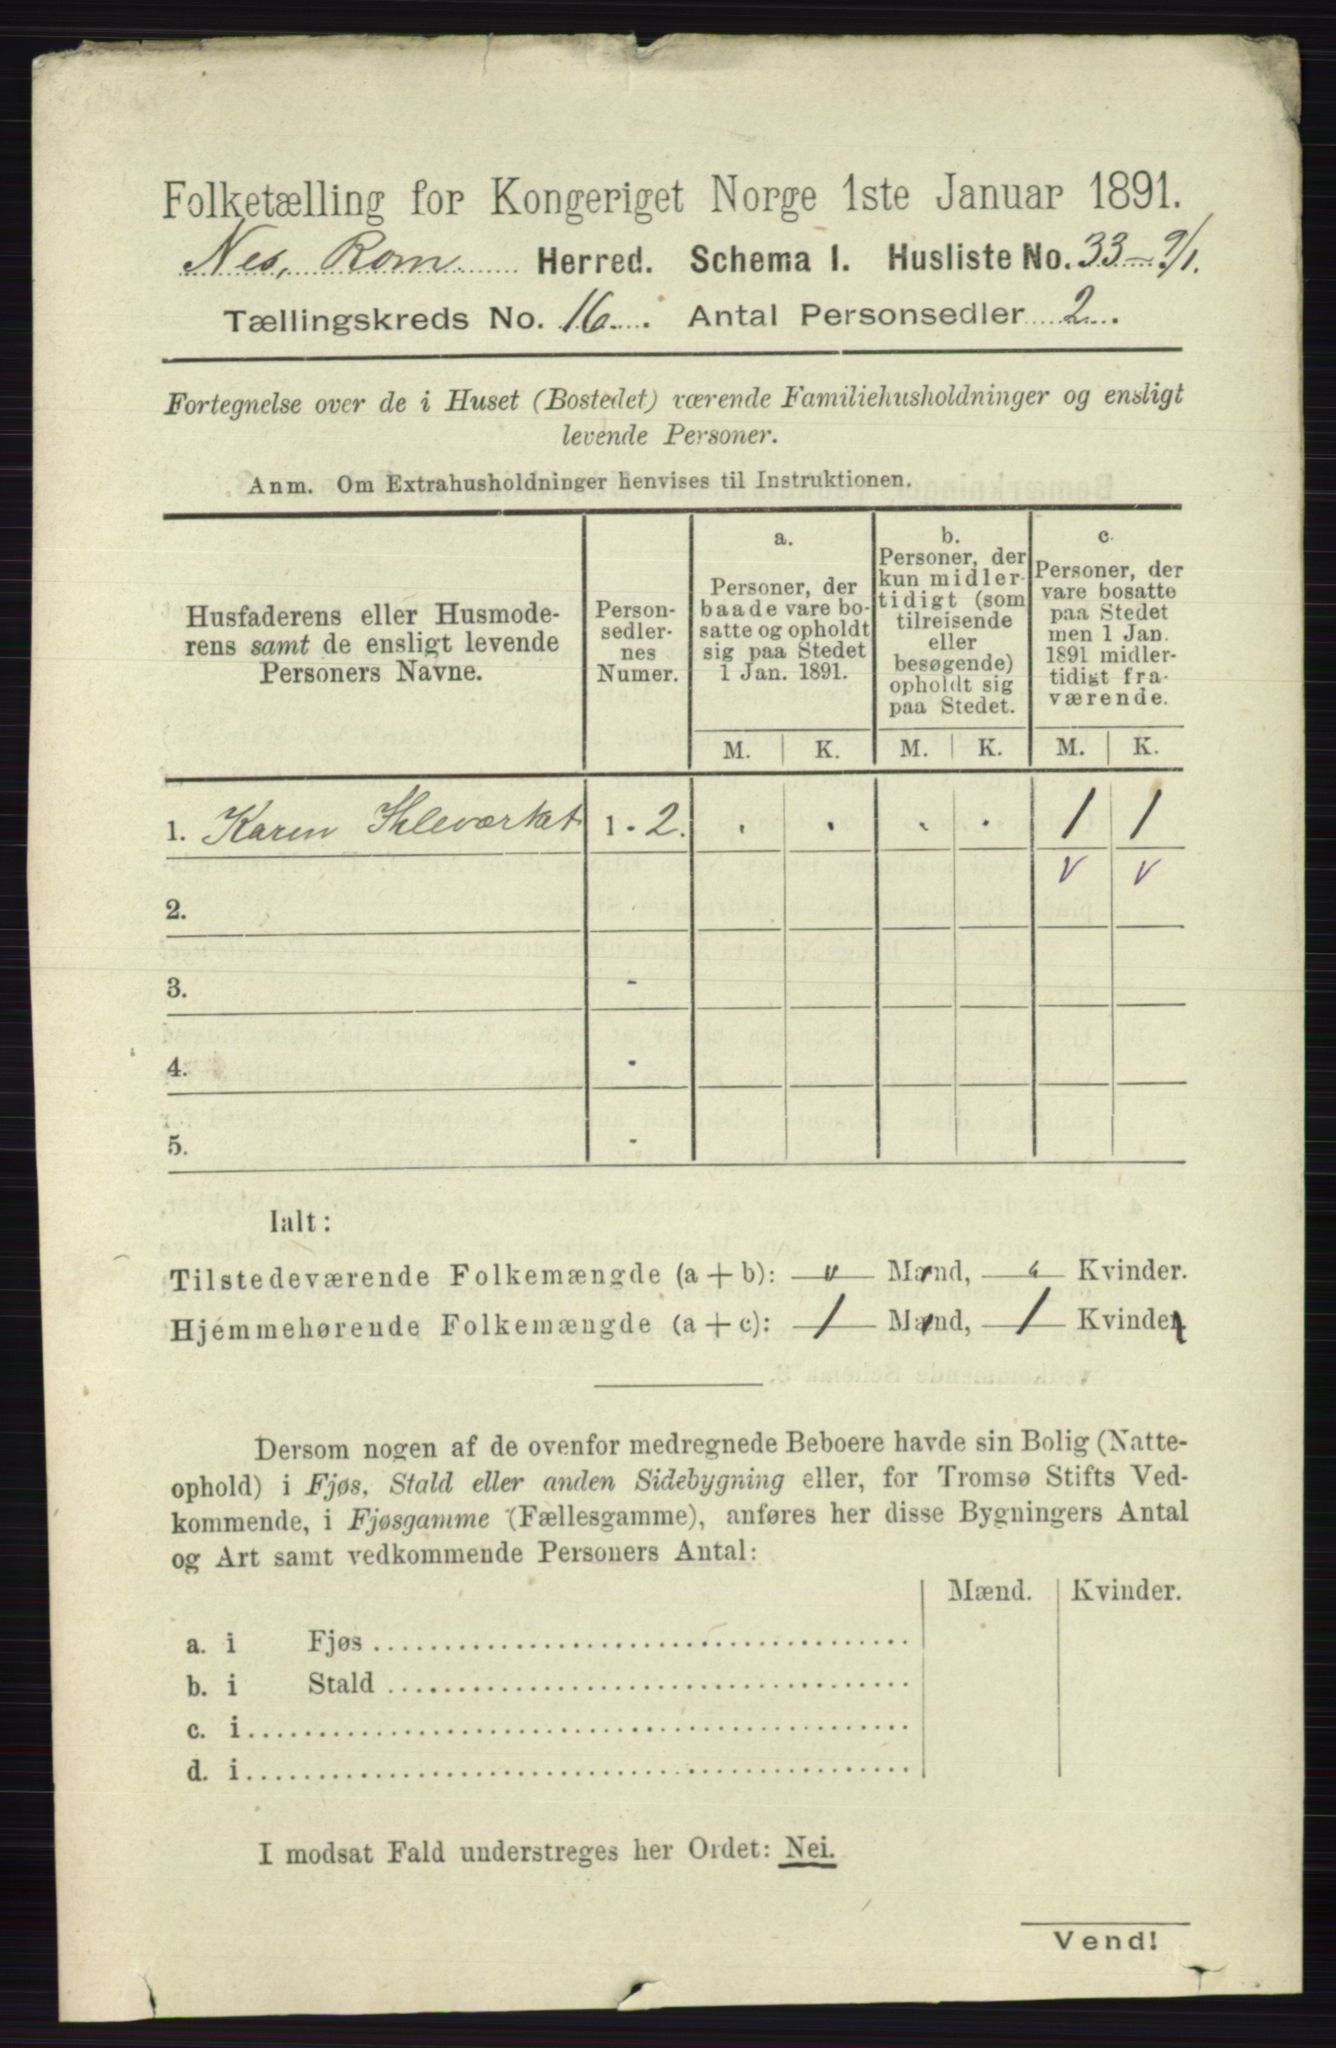 Folketælling for Kongeriget Norge 1ste Januar 1891.
Nes, Rom. Herred. Schema 1. Husliste No. 33 - 9/1.
Tællingskreds No. 16. Antal Personsedler 2.
Fortegnelse over de i Huset (Bostedet) værende Familiehusholdninger og ensligt
levende Personer.
Anm. Om Extrahusholdninger henvises til Instruktionen.
Husfaderens eller Husmode-
rens samt de ensligt levende
Personers Navne.
Person-
sedler-
nes
Numer.
a.
Personer, der
baade vare bo-
satte og opholdt
sig paa Stedet
1 Jan. 1891.
b.
Personer, der
kun midler-
tidigt (som
tilreisende
eller
besøgende)
opholdt sig
paa Stedet.
c.
Personer, der
vare bosatte
paa Stedet
men 1 Jan.
1891 midler-
tidigt fra-
værende.
M. K. M. K. M. K.
1. Karen 1 - 2. 1 1
v v
2.
3. -
4. -
5. -
Ialt:
Tilstedeværende Folkemængde (a + b): " Mænd, " Kvinder.
Hjemmehørende Folkemængde (a + c): 1 Mænd, 1 Kvinder
Dersom nogen af de ovenfor medregnede Beboere havde sin Bolig (Natte-
ophold) i Fjøs, Stald eller anden Sidebygning eller, for Tromsø Stifts Ved-
kommende, i Fjøsgamme (Fællesgamme), anføres her disse Bygningers Antal
og Art samt vedkommende Personers Antal:
Mænd. Kvinder.
a. i Fjøs
b. i Stald
c. i
d. i
I modsat Fald understreges her Ordet: Nei.
Vend!